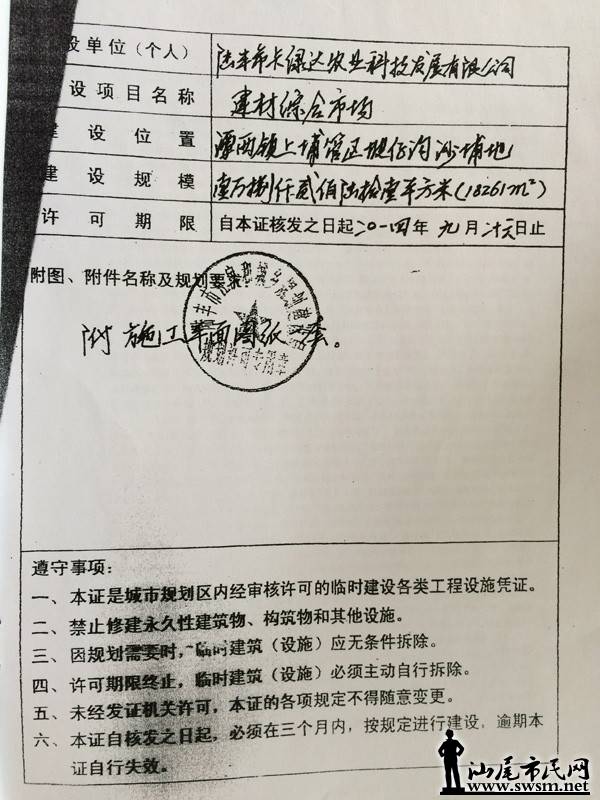 设单位(个人) 陆丰市卡绿达农业科技发展有限公司
设项目名称 建材综合市场
建设位置 潭西镇上埔管区 沙埔地
建设规模 壹万捌仟贰佰陆拾壹平方米(18261m²)
许可期限 自本证核发之日起二〇一四年九月廿六日止
附图、附件名称及规划要求
附施工平面图纸 套。
遵守事项:
一、本证是城市规划区内经审核许可的临时建设各类工程设施凭证。
二、禁止修建永久性建筑物、构筑物和其他设施。
三、因规划需要时,临时建筑(设施)应无条件拆除。
四、许可期限终止,临时建筑(设施)必须主动自行拆除。
五、未经发证机关许可,本证的各项规定不得随意变更。
六、本证自核发之日起,必须在三个月内,按规定进行建设,逾期本
证自行失效。
汕尾市民网
www.swsm.net